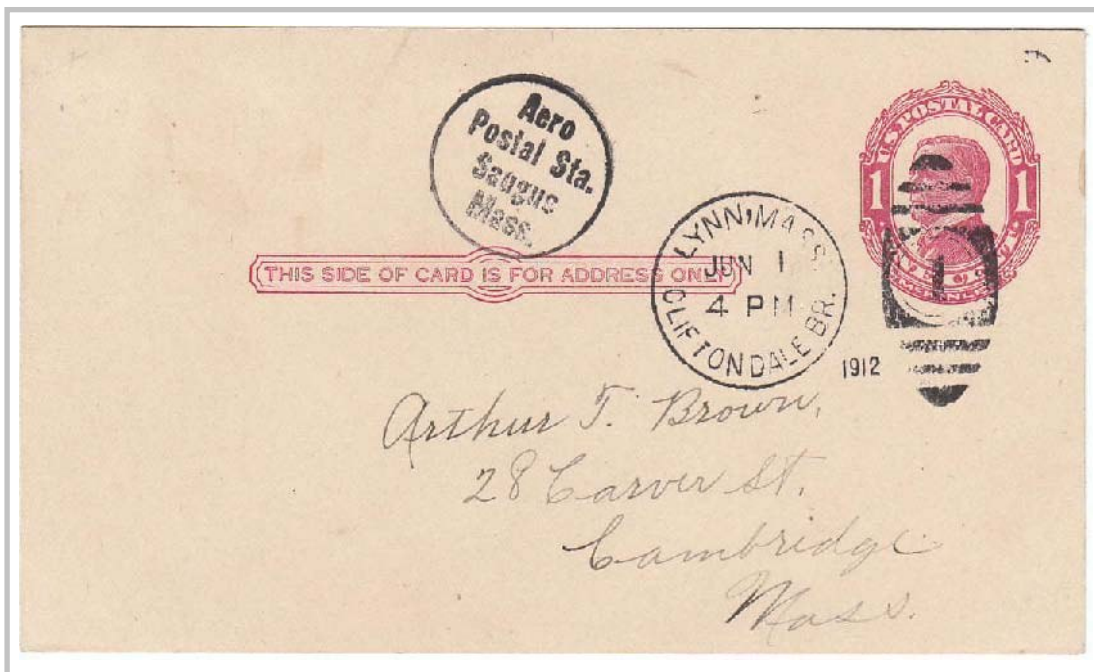 Aero
Postal Sta.
Saugus
Mass.
U.S. POSTAL CARD
1 1
THIS SIDE OF CARD IS FOR ADDRESS ONLY
LYNN, MASS.
JUN 1
4 PM
CLIFTONDALE BR.
1
1912
Arthur T. Brown,
28 Carver St.
Cambridge
Mass.